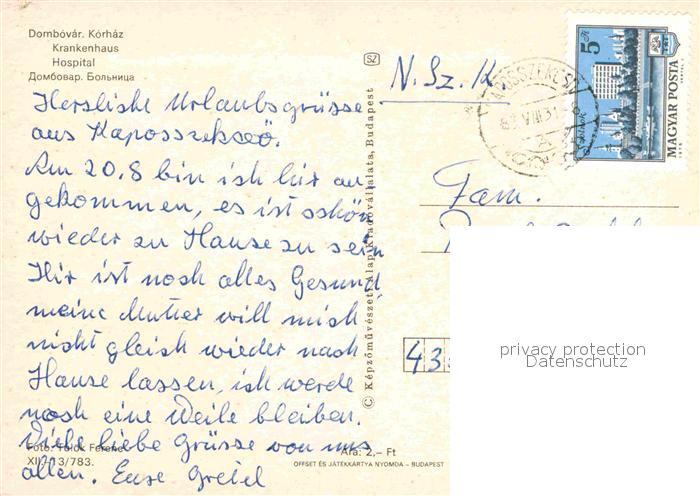 Dombóvár. Kórház
Krankenhaus
Hospital
Домбовар. Больница
Hersliche Urlaubsgrüsse
aus Kaposszekcső.
Am 20.8 bin ich hir an
gekommen, es ist schön
wieder zu Hause zu sein
Hir ist noch alles Gesund,
meine Mutter will mich
nicht gleich wieder nach
Hause lassen, ich werde
noch eine Weile bleiben.
Viele liebe Grüsse von uns
allen. Eure Gretel
Foto: Tulok Ferenc
XII/13/783.
Ára: 2,- Ft
OFFSET ÉS JÁTÉKKÁRTYA NYOMDA – BUDAPEST
SZ
© Képzőművészeti Alap Kiadóvállalata, Budapest
N. Sz. K
KAPOSSZEKCSŐ
VIII.31
5 Ft
MAGYAR POSTA
Fam.
43
privacy protection
Datenschutz